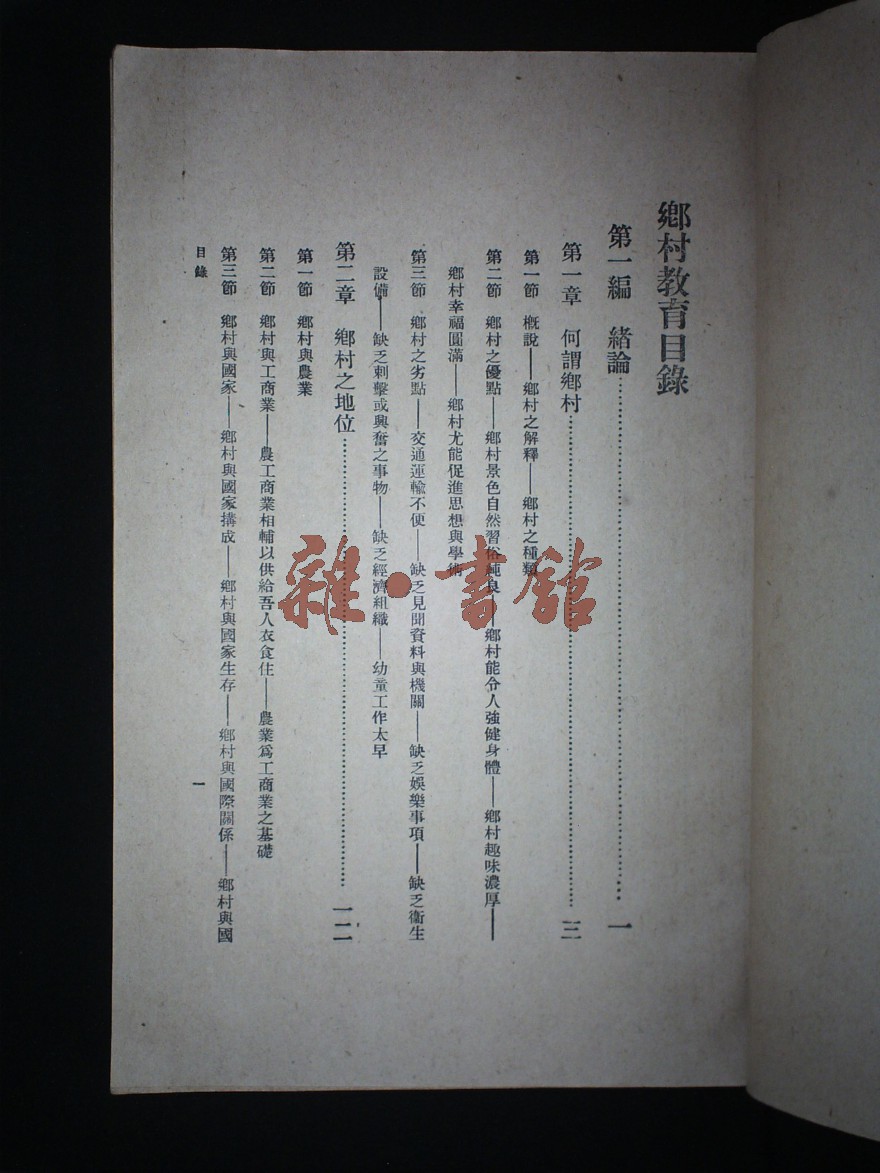 鄉村教育目錄
第一編　緒論……一
第一章　何謂鄉村……三
第一節　概說——鄉村之解釋——鄉村之種類
第二節　鄉村之優點——鄉村景色自然習俗純良——鄉村能令人強健身體——鄉村趣味濃厚——
鄉村幸福圓滿——鄉村尤能促進思想與學術
第三節　鄉村之劣點——交通運輸不便——缺乏見聞資料與機關——缺乏娛樂事項——缺乏衞生
設備——缺乏刺擊或興奮之事物——缺乏經濟組織——幼童工作太早
第二章　鄉村之地位……一二
第一節　鄉村與農業
第二節　鄉村與工商業——農工商業相輔以供給吾人衣食住——農業爲工商業之基礎
第三節　鄉村與國家——鄉村與國家搆成——鄉村與國家生存——鄉村與國際關係——鄉村與國
目錄
一
雜·書館